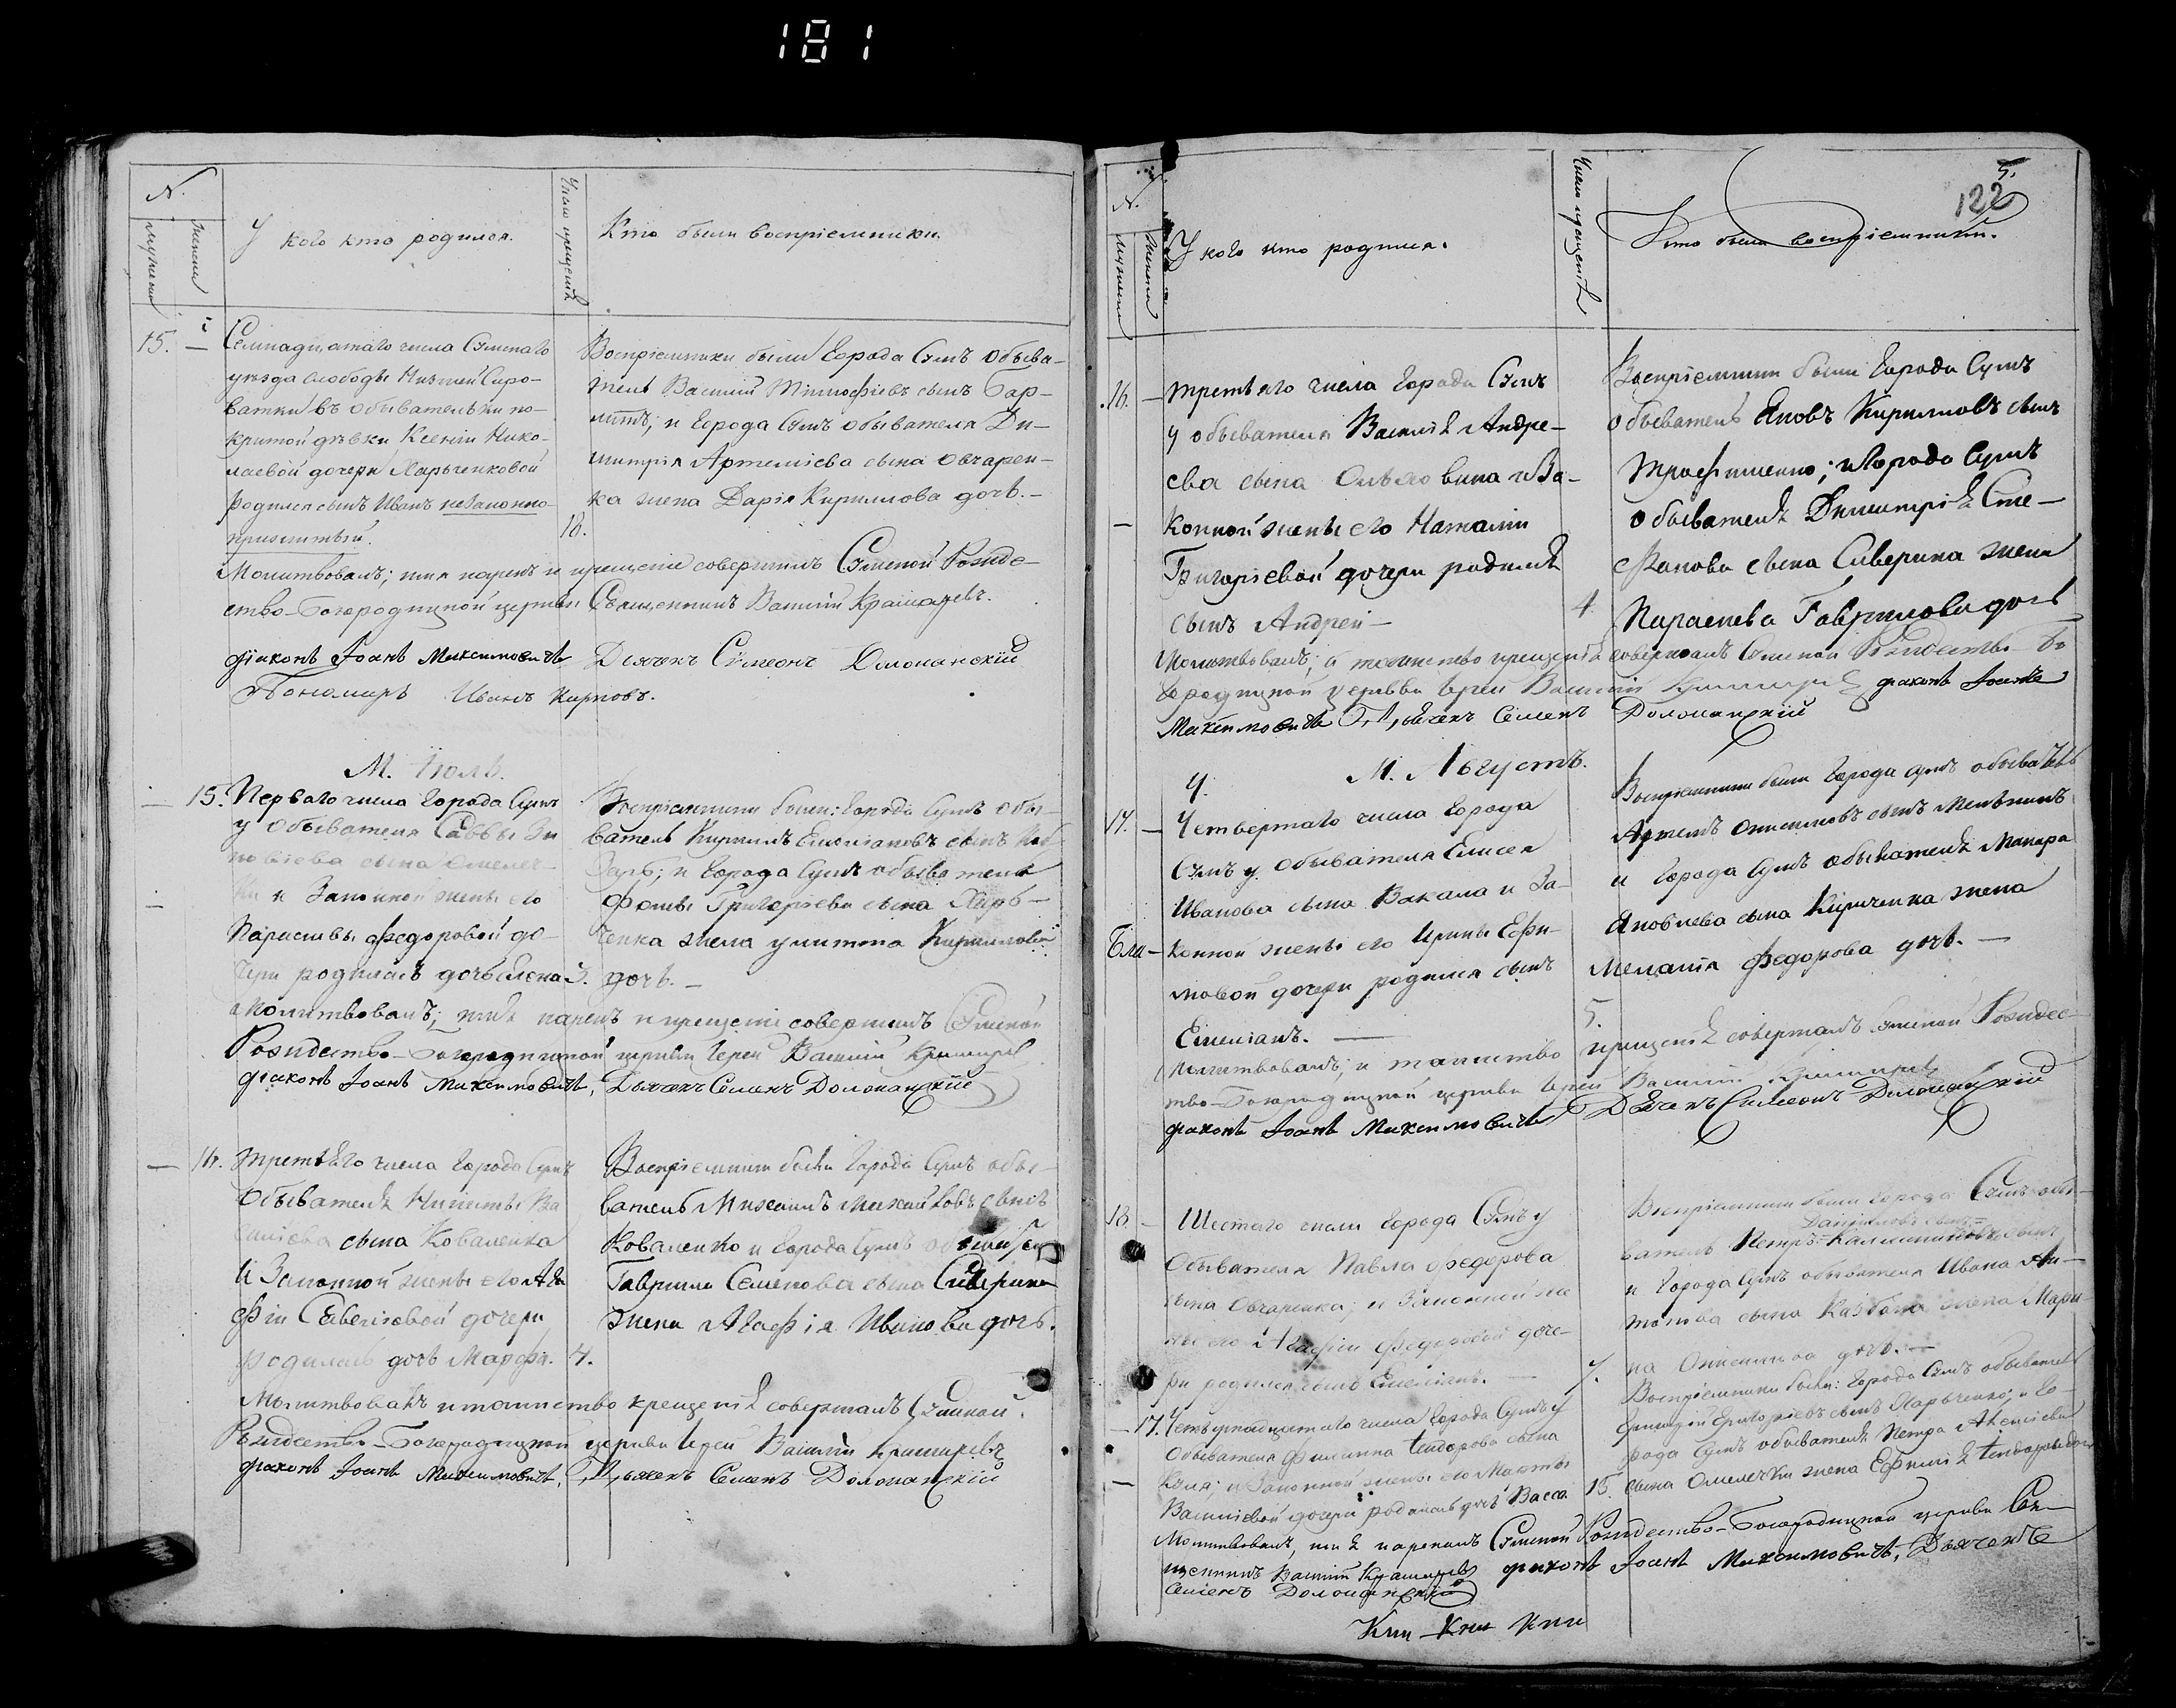 181
N.
мужеска
женска
У кого кто родился.
Число крещенія
Кто были воспріемники.
15. —
Семнадцатаго числа Сумскаго
уезда слободы Нижней Сыро-
ватки въ обывательки по-
критой девки Ксеніи Нико-
лаевой дочери Харьченковой
родился сынъ Иванъ незаконно-
прижитый.
18.
Воспріемники были Города Сумъ обыва-
тель Василій Тимофіевъ сынъ
и Города Сумъ обывателя Ди-
митрія Артеміева сына Овчарен-
ка жена Дарія Кирилова дочь. —
Молитвовалъ; имя нарекъ и крещеніе совершилъ Сумской Рожде-
ство-Богородицкой церкви Священникъ Василій Крамаревъ.
Діаконъ Іоанъ Максимовичъ Дьячекъ Сѵмеонъ Доломанскій
Пономарь Иванъ Карповъ.
М. Іюль.
— 15.
Перваго числа Города Сумъ
у обывателя Саввы Зи
новіева сына Омелеч-
ки и Законной жены его
Парасквы Федоровой до-
чери родилась дочь Елена 3.
Воспріемники были: Города Сумъ обы-
ватель Кирилъ Емеліановъ сынъ
и Города Сумъ обывателя
Фомы Григоріева сына Харь-
ченка жена Улитта Кирилова
дочь. —
Молитвовалъ; имя нарекъ и крещеніе совершилъ Сумской
Рождество-Богородицкой церкви Іерей Василій Крамаревъ
Діаконъ Іоанъ Максимовичъ, Дьячекъ Семенъ Доломанскій
— 16.
Третьяго числа Города Сумъ
Обывателя Никиты Ва
силіева сына Коваленка
и Законной жены его Ага
фіи Савеліевой дочери
родилась дочь Марфа. 4.
Воспріемники были Города Сумъ обы-
ватель Михаилъ Михайловъ сынъ
Коваленко и Города Сумъ обывателя
Гаврила Семенова сына Северина
жена Агафія Иванова дочь.
Молитвовалъ и таинство крещенія совершалъ Сумской
Рождество-Богородицкой церкви Іерей Василій Крамаревъ
Діаконъ Іоанъ Максимовичъ, Дьячекъ Семенъ Доломанскій
5.
122
N.
мужеска
женска
У кого кто родился.
Число крещенія
Кто были воспріемники.
16. —
Третьяго числа Города Сумъ
у обывателя Василія Андре-
ева сына и За-
конной жены его Наталіи
Григоріевой дочери родился
сынъ Андрей —
4.
Воспріемники были Города Сумъ
обыватель Яковъ Кириловъ сынъ
Трофименко; и Города Сумъ
обывателя Димитрія Сте-
фанова сына Северина жена
Параскева Гаврилова дочь
Молитвовалъ; и таинство крещенія совершалъ Сумской Рождество-Бо
городицкой церкви Іерей Василій Крамаревъ Діаконъ Іоанъ
Максимовичъ Дьячекъ Семенъ Доломанскій
М. Августъ.
17. —
Четвертаго числа Города
Сумъ у обывателя Елисея
Иванова сына Вакала и За-
конной жены его Ирины Ефи-
мовой дочери родился сынъ
Емеліанъ. —
5.
Воспріемники были Города Сумъ обыватель
Артемъ Онисимовъ сынъ Мельникъ
и Города Сумъ обывателя Макара
Яковлева сына Кириченка жена
Меланія Федорова дочь. —
Молитвовалъ; и таинство крещенія совершалъ Сумской Рождес-
тво-Богородицкой церкви Іерей Василій Крамаревъ
Діаконъ Іоанъ Максимовичъ Дьячекъ Сѵмеонъ Доломанскій
18. —
Шестаго числа Города Сумъ у
Обывателя Павла Федорова
сына Овчаренка; и Законной же
ны его Агафіи Федоровой доче-
ри родился сынъ Емеліанъ. —
7.
Воспріемники были Города Сумъ обы-
Даниловъ сынъ
ватель Петръ Калининковъ сынъ
и Города Сумъ обывателя Ивана Ан-
тонова сына жена Мари-
на Онисимова дочь. —
— 17.
Четырнадцатаго числа Города Сумъ у
Обывателя Филиппа Теодорова сына
Коля; и Законной жены его Марты
Василіевой дочери родилась дочь Васса
15.
Воспріемники были: Города Сумъ обыватель
Григоріевъ сынъ Харьченко; и Го-
рода Сумъ обывателя Петра Алексіева
сына Омелечки жена Ефимія Теодорова дочь
Молитвовалъ, имя нарекалъ Сумской Рождество-Богородицкой церкви Свя-
щенникъ Василій Крамаревъ Діаконъ Іоанъ Максимовичъ, Дьячекъ
Семенъ Доломанскій